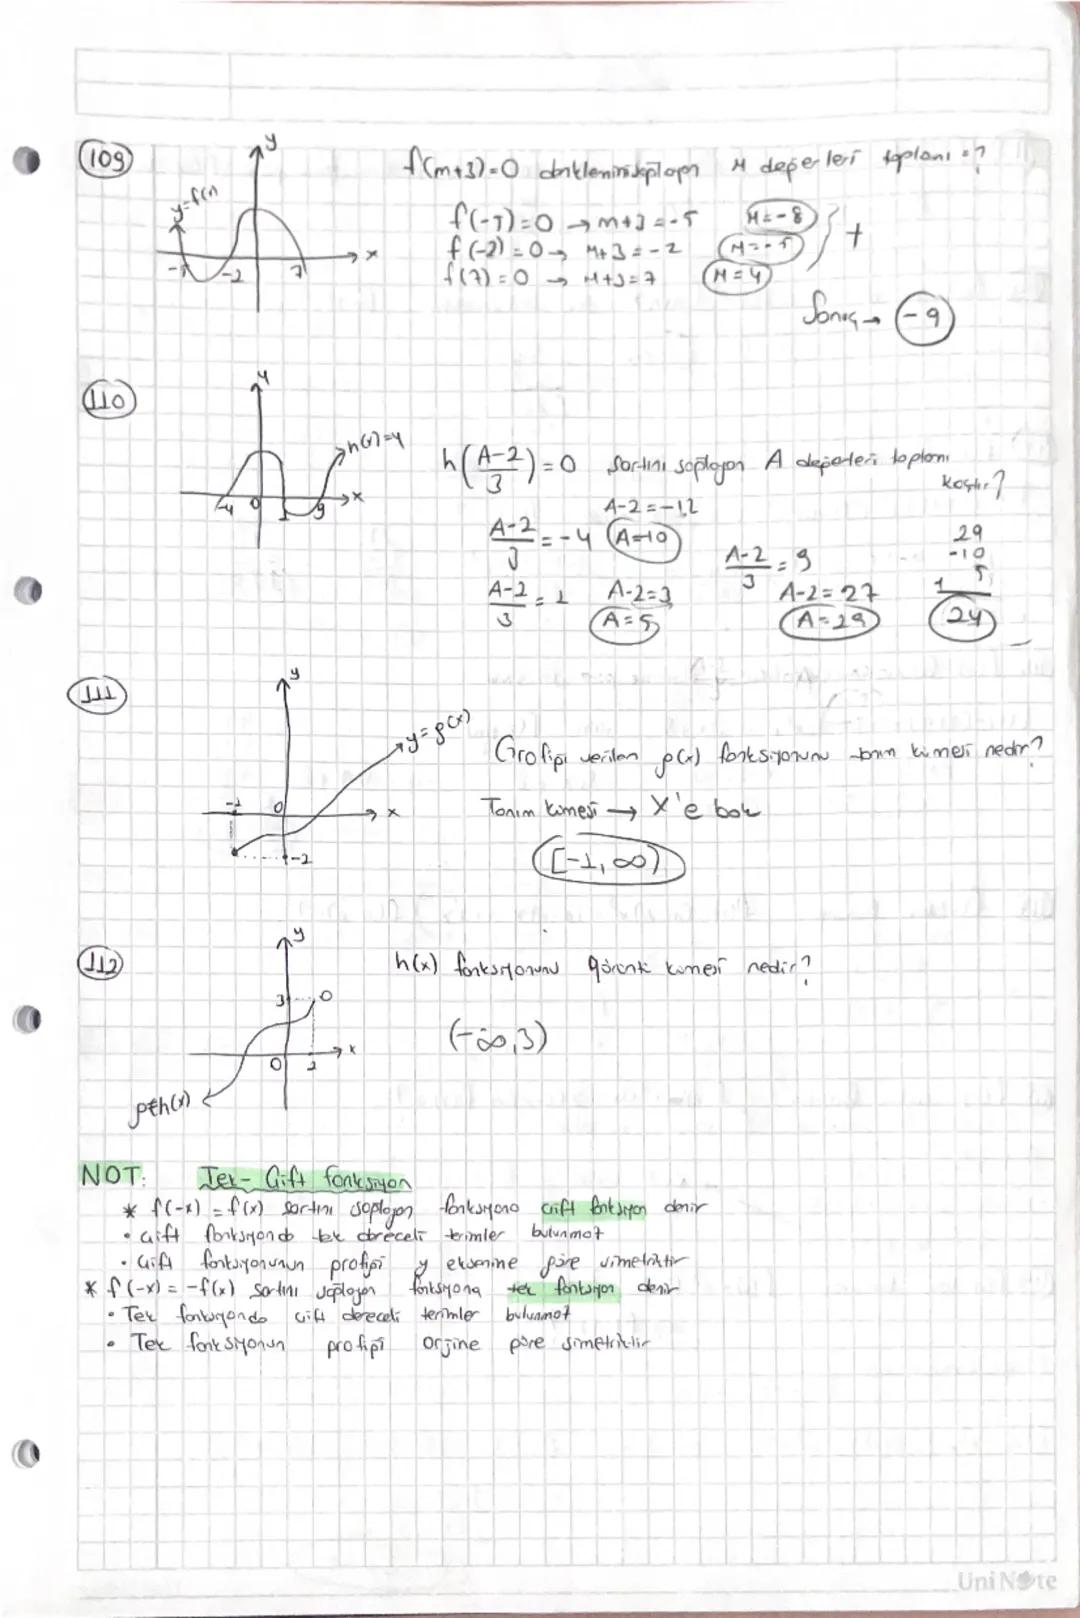 109
y
y=f(x)
f(m+3)=0 denklemini sağlayan M değerleri toplamı =?
f(-5)=0 → m+3=-5 M=-8
f(-2)=0 → M+3=-2 M=-5 +
f(7)=0 → M+3=7 M=4
-5 -2 7 x
Sonuç → -9
110
y
h(x)=y
h(A-2/3)=0 şartını sağlayan A değerleri toplamı
kaçtır?
-4 0 1 9 x
A-2/3=-4 A-2=-12
A=-10
A-2/3=1 A-2=3
A=5
A-2/3=9
A-2=27
A=29
29
-10
5
24
111
y
y=g(x)
Grafiği verilen g(x) fonksiyonunu tanım kümesi nedir?
-1 0 x
-2
Tanım kümesi → X'e bak
[-1,∞)
112
y
h(x) fonksiyonunu görüntü kümesi nedir?
3
0 x
(-∞,3)
NOT: Tek-Çift fonksiyon
* f(-x)=f(x) şartını sağlayan fonksiyona çift fonksiyon denir
• Çift fonksiyonda tek dereceli terimler bulunmaz
• Çift fonksiyonunun grafiği y eksenine göre simetriktir
* f(-x)=-f(x) şartını sağlayan fonksiyona tek fonksiyon denir
• Tek fonksiyonda çift dereceli terimler bulunmaz
• Tek fonksiyonun grafiği orjine göre simetriktir
UniNote